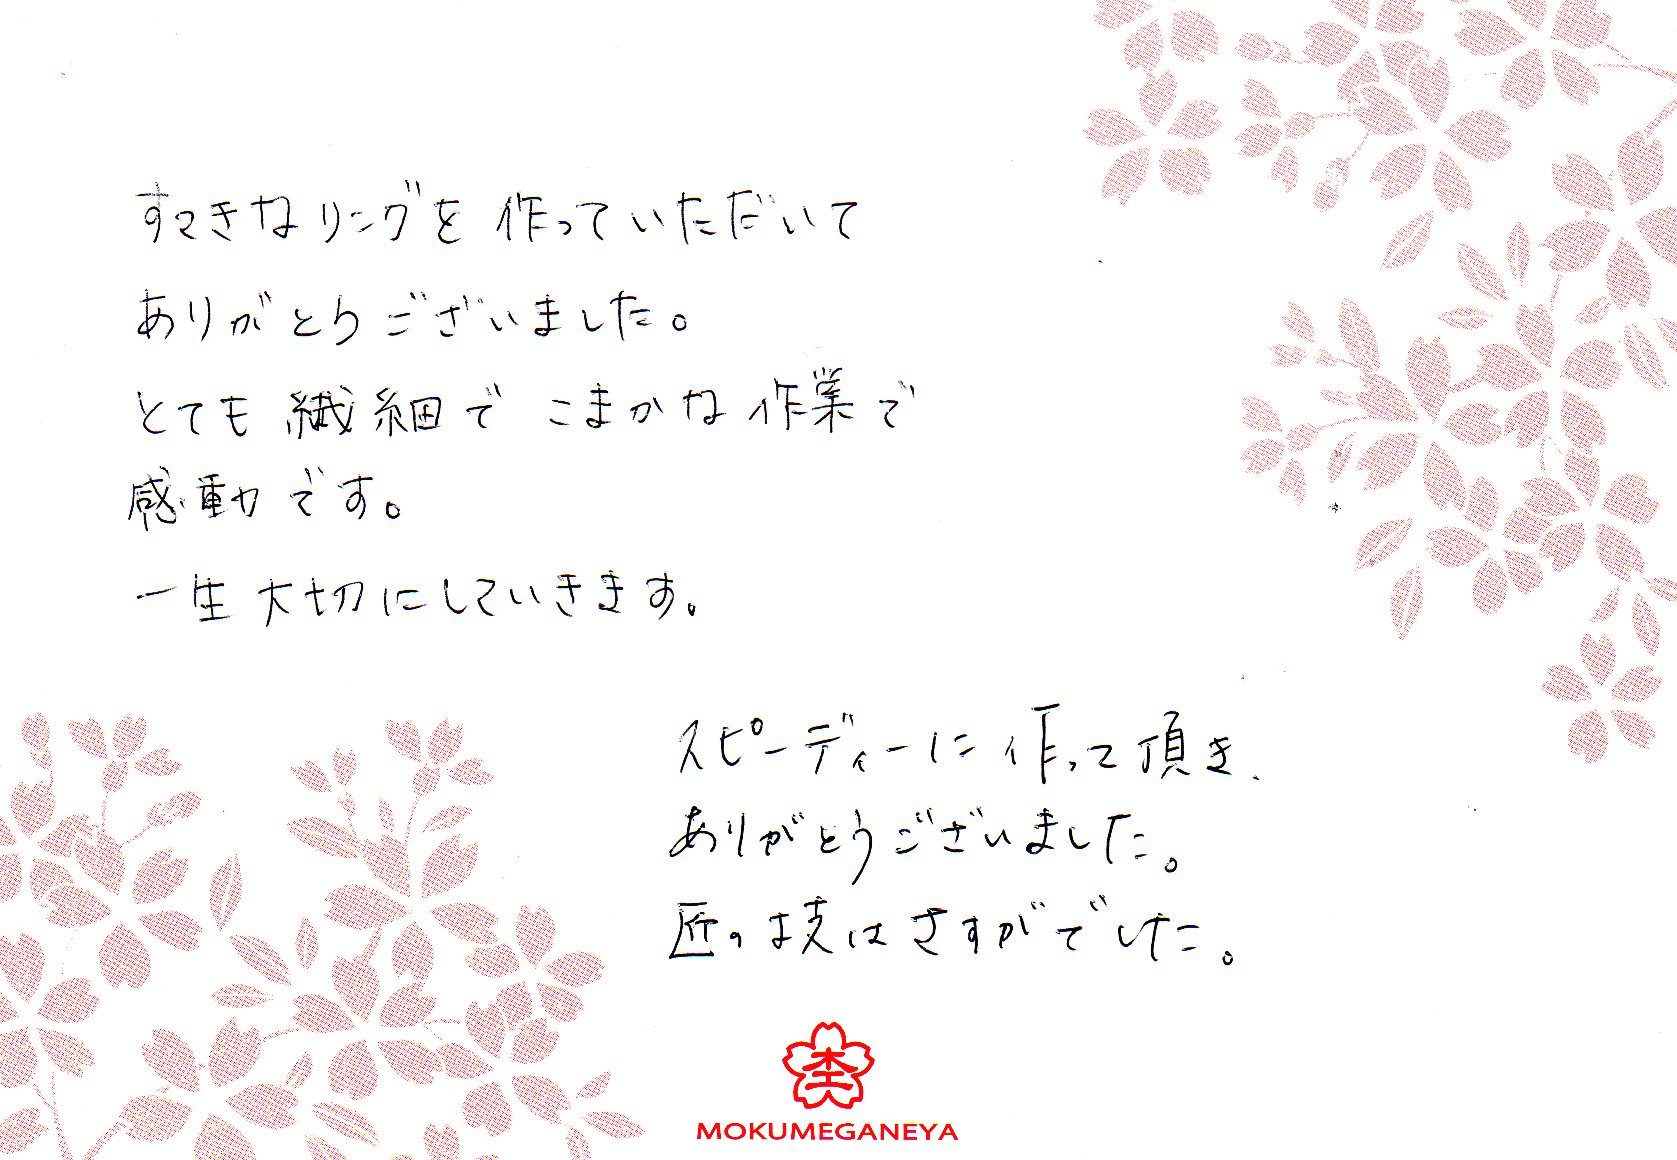 すてきなリングを作っていただいて
ありがとうございました。
とても繊細でこまかな作業で
感動です。
一生大切にしていきます。
スピーディーに作って頂き、
ありがとうございました。
匠の技はさすがでした。
MOKUMEGANEYA